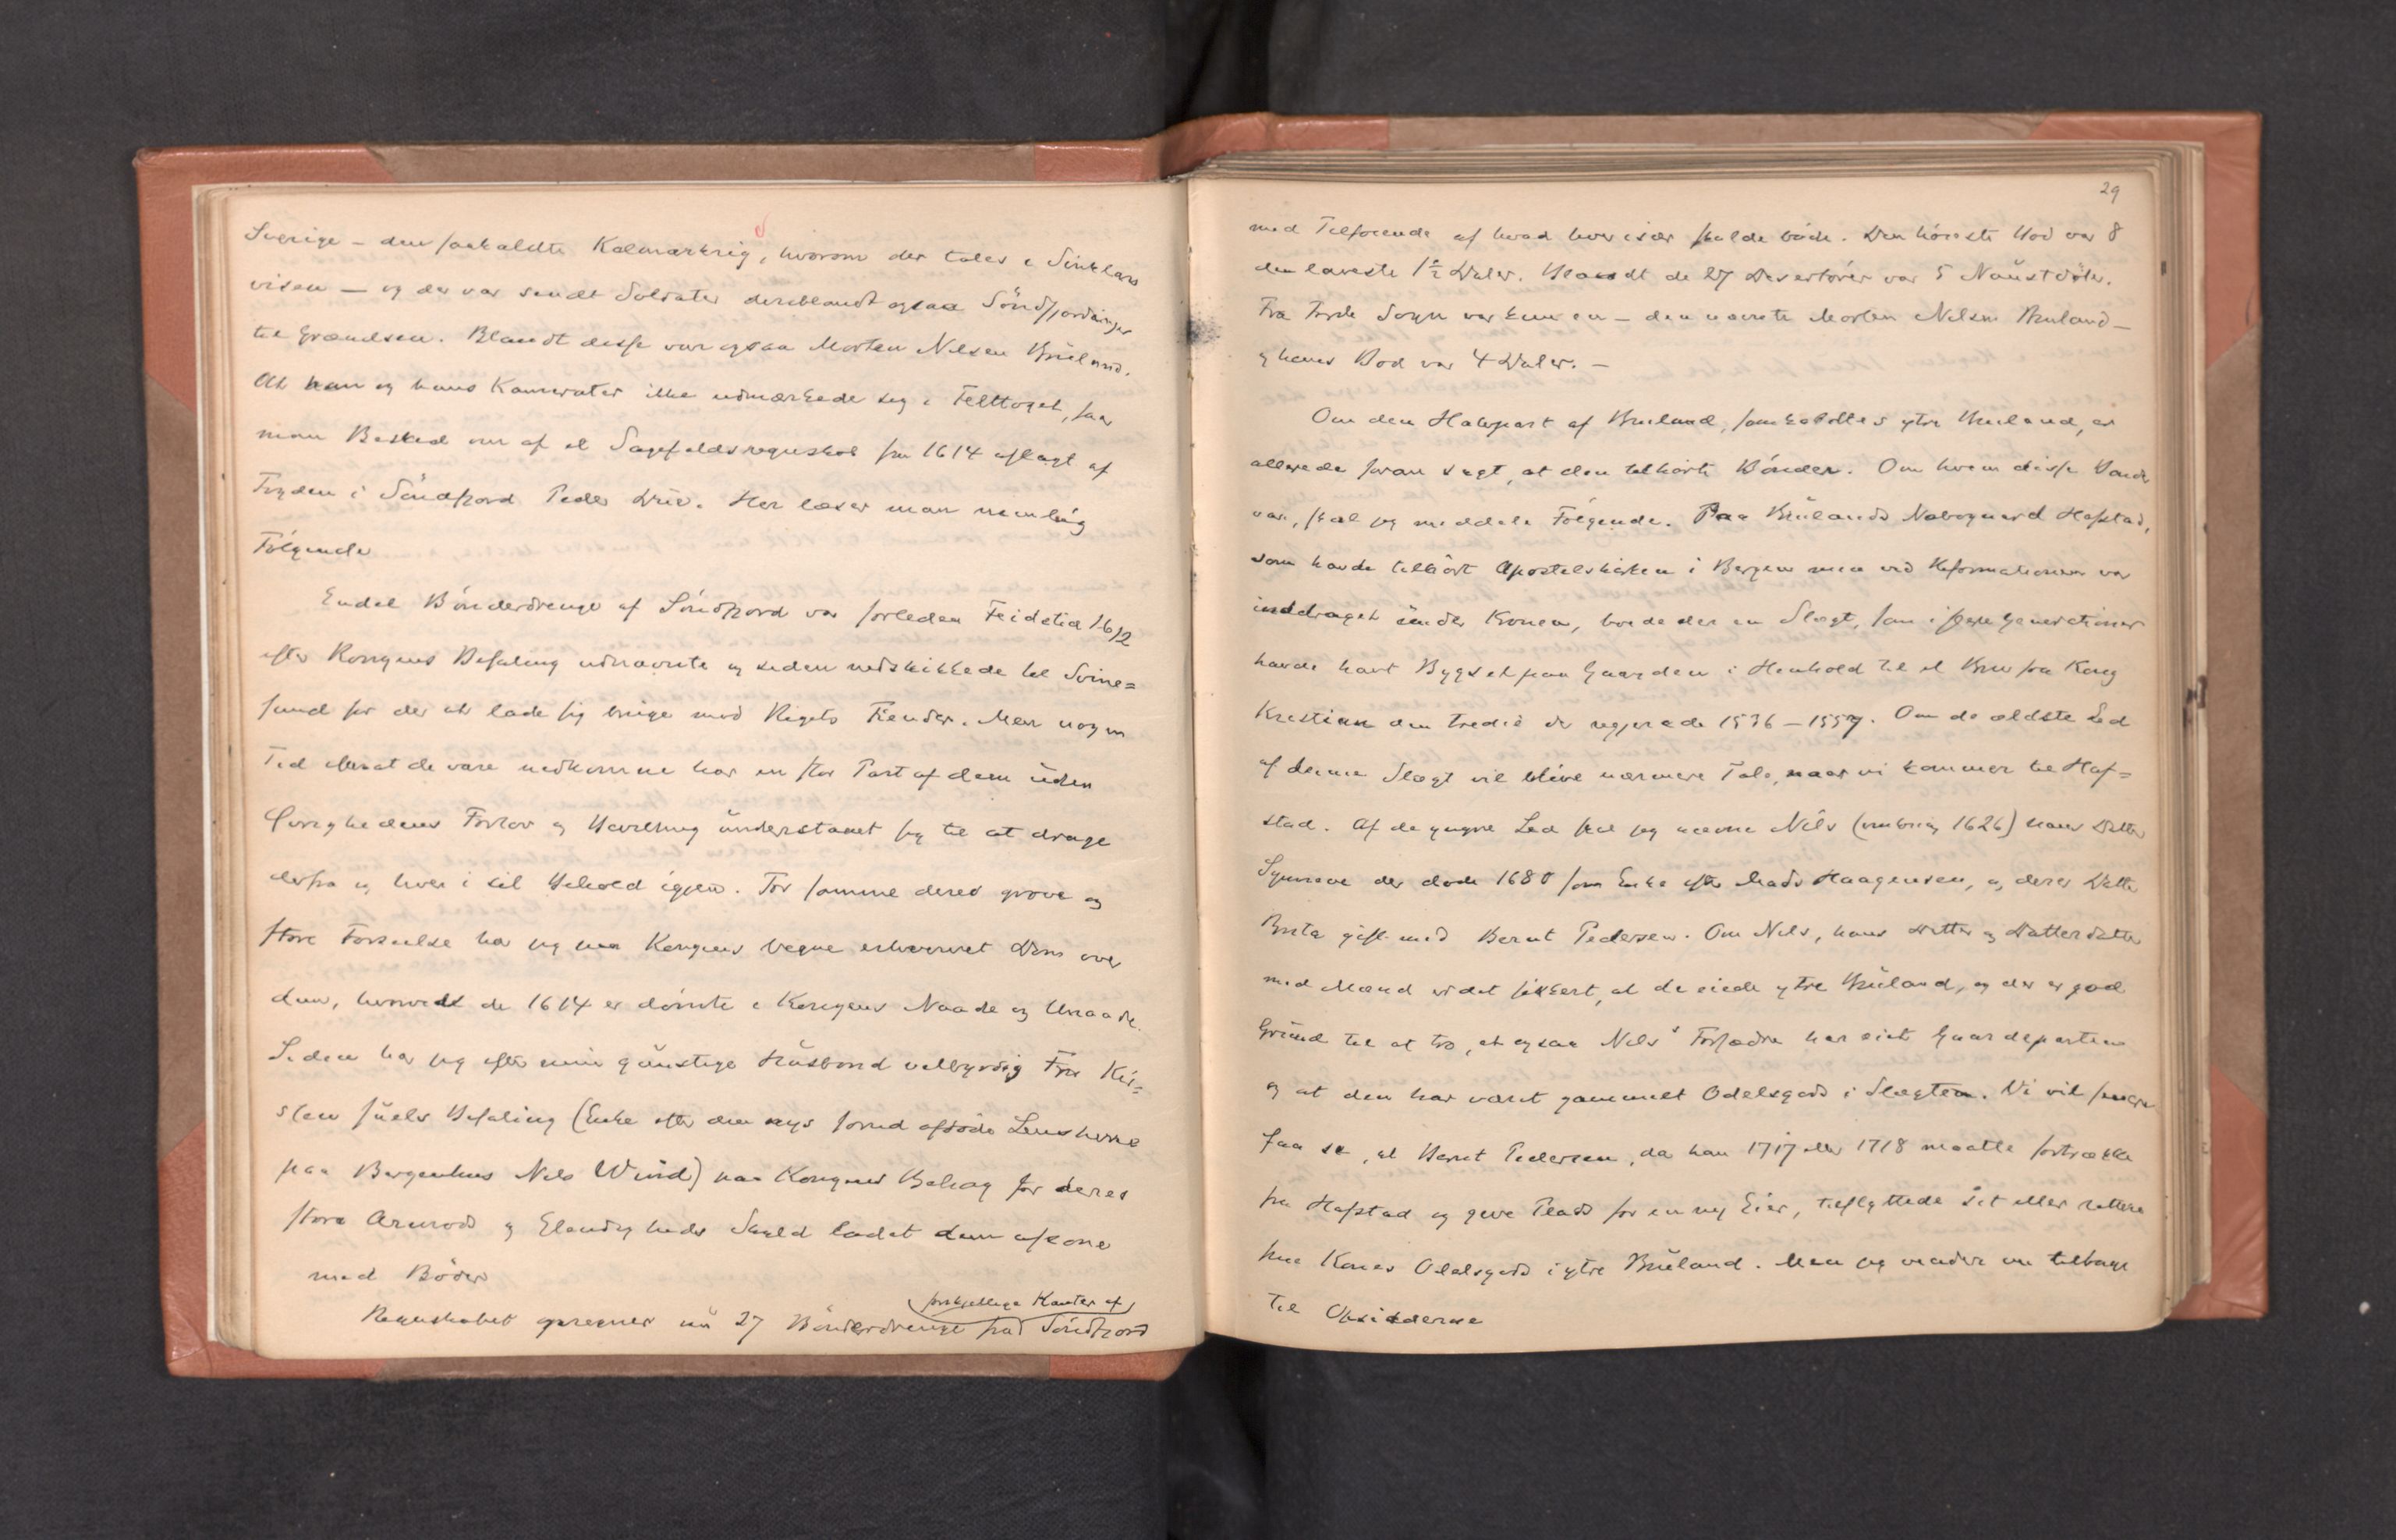 Sverige – den saakaldte Kalmarkrig, hvorom der tales i Sinklars
visen – og der var sendt Soldater deriblandt ogsaa Söndfjordinger
til Grændsen. Blandt disse var ogsaa Morten Nilsen Bruland.
At han og hans Kamerater ikke udmærkede sig i Felttoget, faar
man Besked om af et Sagefaldsregnskab fra 1614 aflagt af
Fogden i Söndfjord Peder Griis. Her læser man nemlig
Fölgende
Endel Bönderdrenge af Söndfjord var forleden Feidetid 1612
efter Kongens Befaling udnævnte og siden nedskikkede til Svine=
sund for der at lade sig bruge mod Rigets Fiender. Men nogen
Tid efterat de vare nedkomne har en stor Part af dem uden
Övrighedens Forlov og Bevilling understanet sig til at drage
derfra og hver i sit Behold igjen. For samme deres grove og
store Forseelse har jeg paa Kongens Vegne erhvervet Dom over
dem, hvorved de 1614 er dömte i Kongens Naade og Unaade.
Siden har jeg efter min günstige Husbond velbyrdig Fru Kir=
sten Juels Befaling (Enke efter den nys forud afdöde Lensherre
paa Bergenhus Nils Wind) paa Kongens Behag for deres
store Armods og Elendigheds Skyld ladet dem afsone
med Böder
forskjellige Kanter af
Regnskabet opregner nu 27 Bönderdrenge fra Söndfjord
29
med Tilföiende af hvad hver især skulde böde. Den höieste Bod var 8
den laveste 1½ Daler. Blandt de 27 Desertörer var 5 Naustdöler.
Fra Förde Sogn var kun en – den nævnte Morten Nilsen Bruland –
og hans Bod var 4 Daler. –
Om den Halvpart af Bruland, som kaldtes ytre Bruland, er
allerede foran sagt, at den tilhörte Bönder. Om hvem disse Bönder
var, skal jeg meddele Fölgende. Paa Brulands Nabogaard Hafstad,
som havde tilhört Apostelkirken i Bergen men ved Reformationen var
inddraget under Kronen, boede der en Slægt, som i flere Generationer
havde havt Bygsel paa Gaarden i Henhold til et Brev fra Kong
Kristian den tredie der regjerede 1536–1559. Om de ældste Led
af denne Slægt vil blive nærmere Tale, naar vi kommer til Haf=
stad. Af de yngre Led skal jeg nævne Nils (omkring 1626) hans Datter
Synneve der döde 1680 som Enke efter Mads Haagensen, og deres Datter
Brita gift med Bernt Pedersen. Om Nils, hans Datter og Datterdatter
med Mænd er det sikkert, at de eiede ytre Bruland, og der er god
Grund til at tro, at ogsaa Nils's Forfædre har eiet Gaardeparten
og at den har været gammelt Odelsgods i Slægten. Vi vil senere
faa se, at Bernt Pedersen, da han 1717 eller 1718 maatte fortrække
fra Hafstad og give Plads for en ny Eier, tilflyttede sit eller rettere
sin Kones Odelsgods i ytre Bruland. Men jeg vender nu tilbage
til Opsidderne